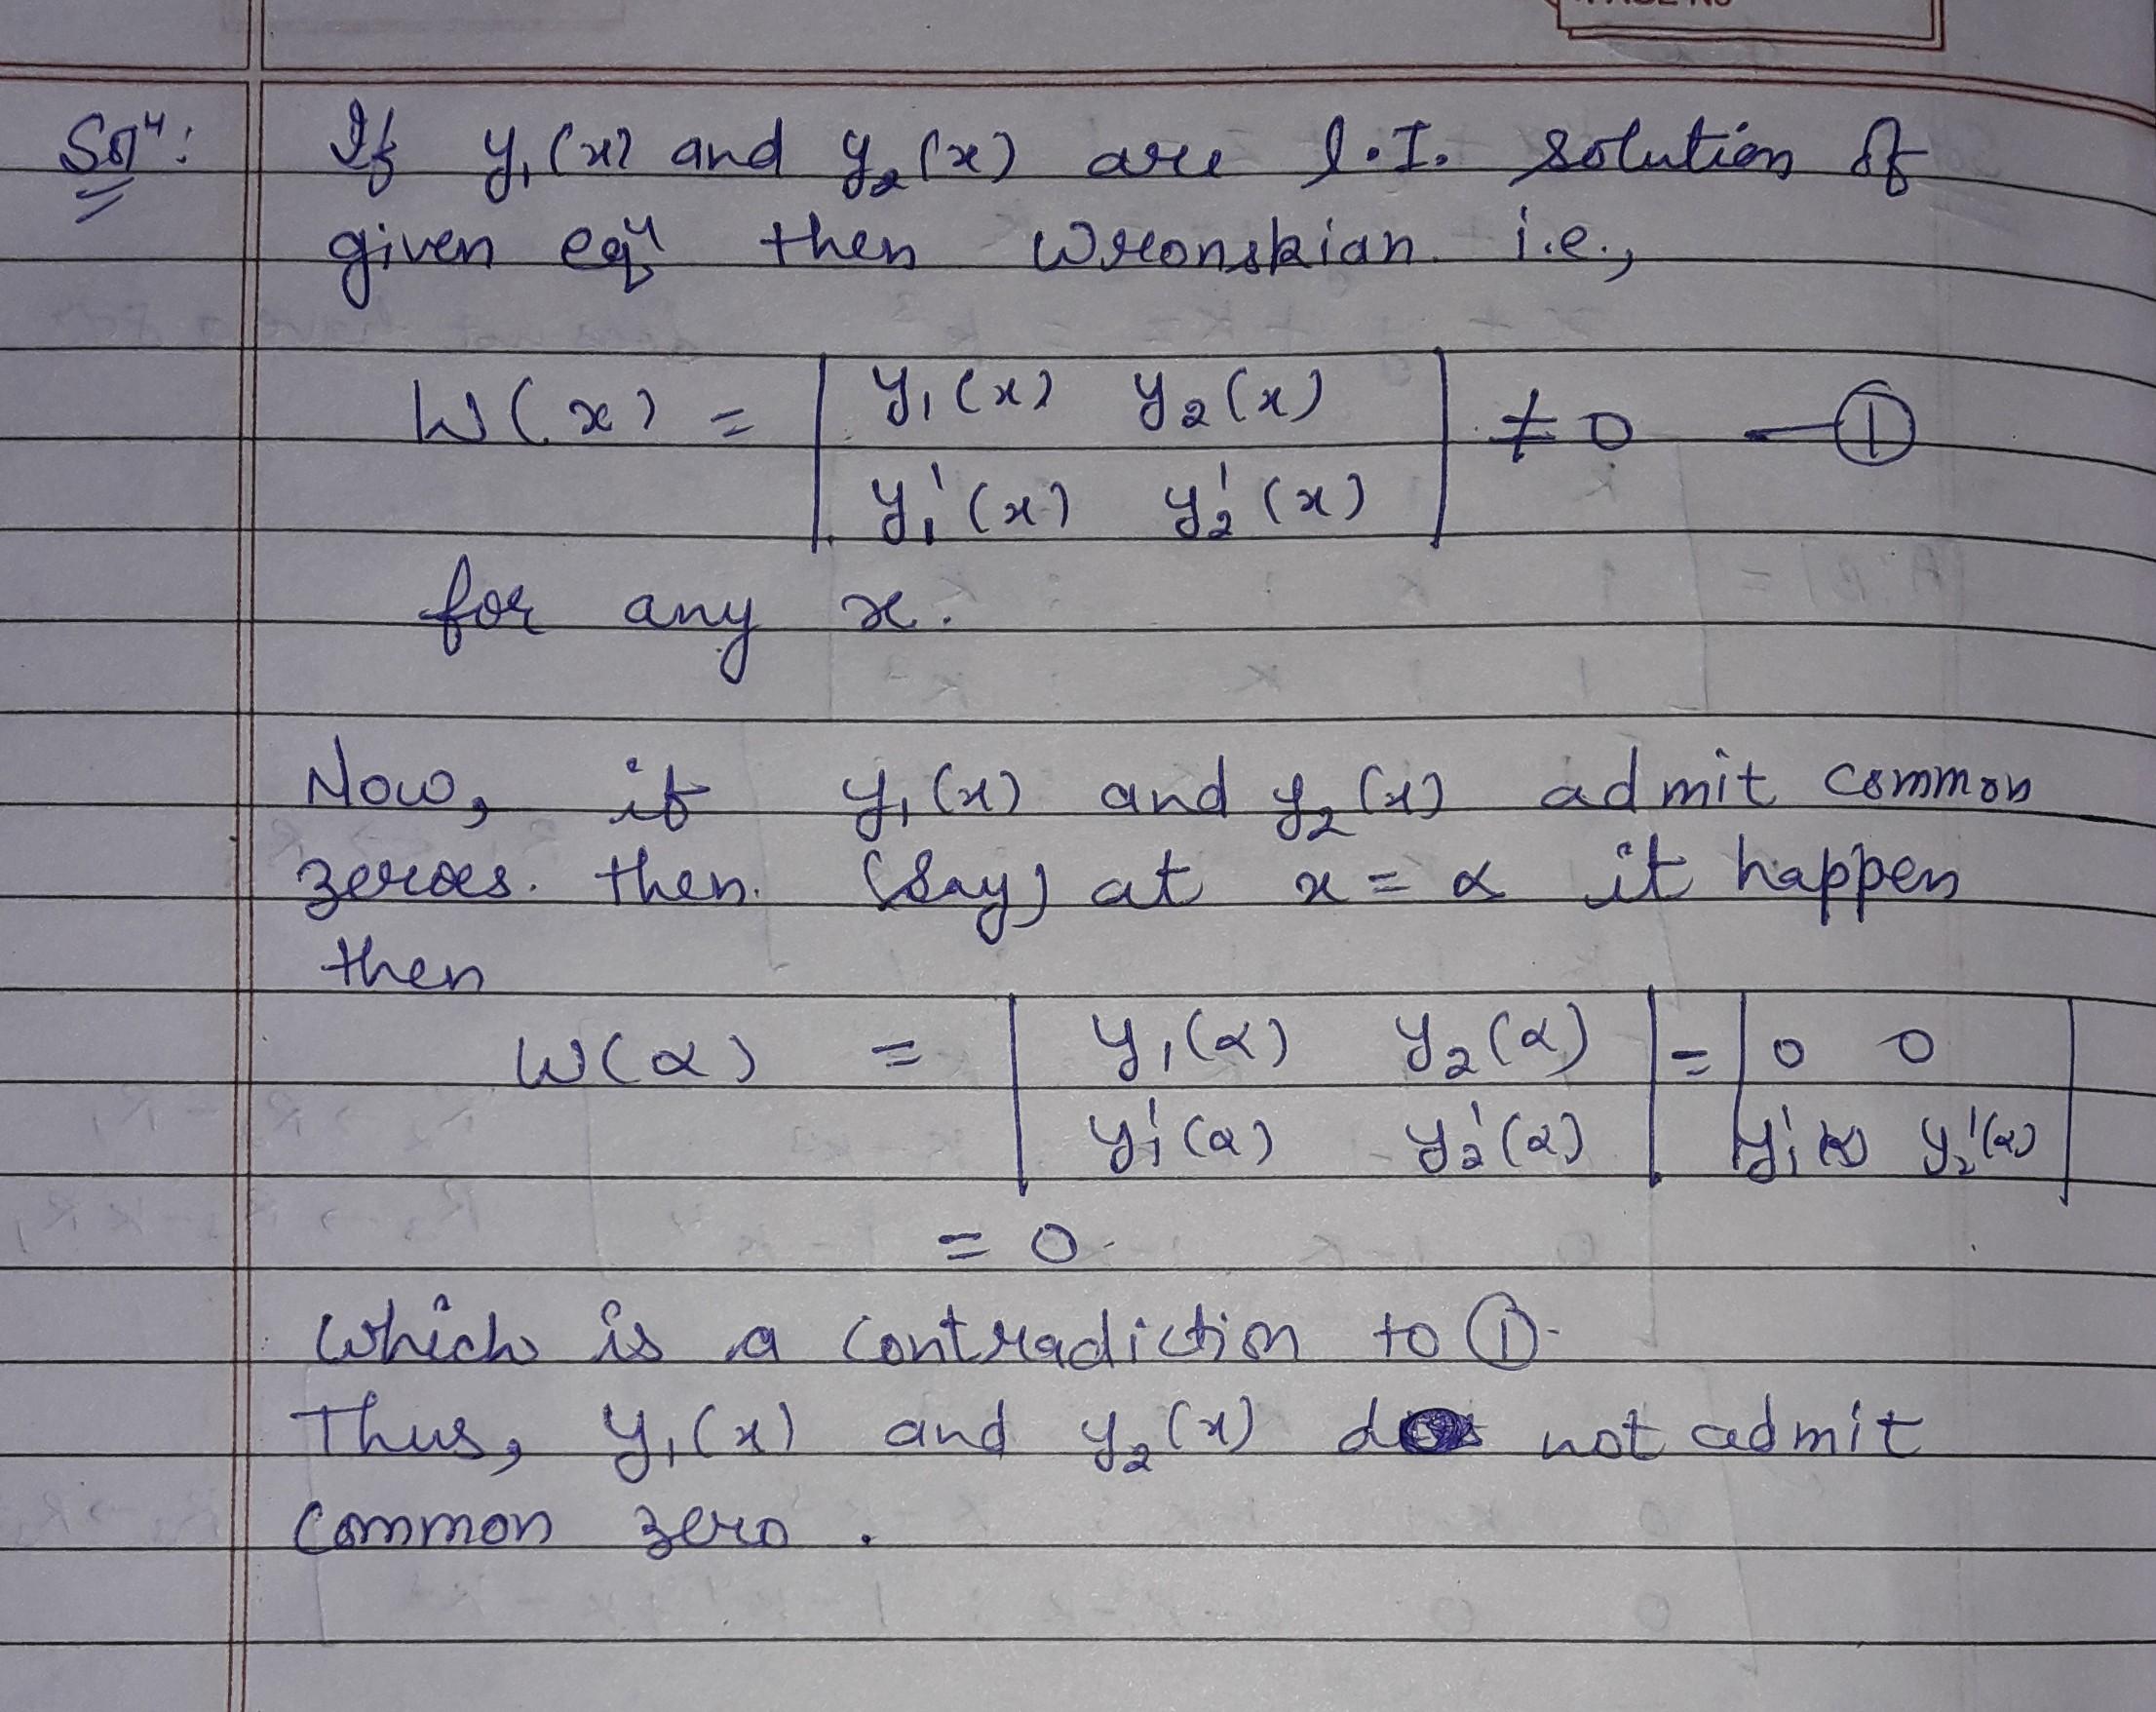 Solⁿ: If y₁(x) and y₂(x) are l.I. solution of
given eqⁿ then Wronskian i.e.,
W(x) = | y₁(x) y₂(x) | ≠ 0 — ①
| y₁'(x) y₂'(x) |
for any x.
Now, if y₁(x) and y₂(x) admit common
zeroes. then (say) at x = α it happen
then
W(α) = | y₁(α) y₂(α) | = | 0 0 |
| y₁'(α) y₂'(α) | | y₁'(α) y₂'(α) |
= 0
which is a contradiction to ①.
Thus, y₁(x) and y₂(x) do not admit
common zero.